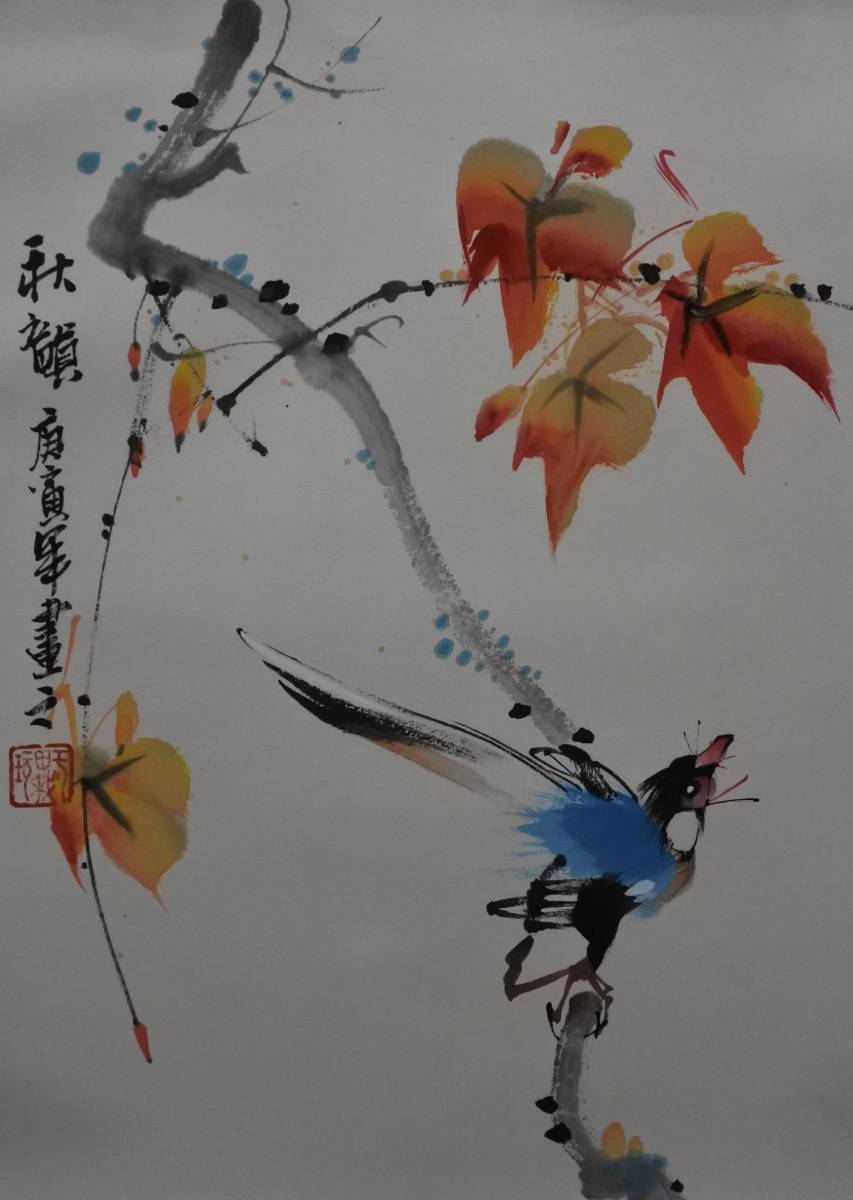 秋韻
庚寅年畫之